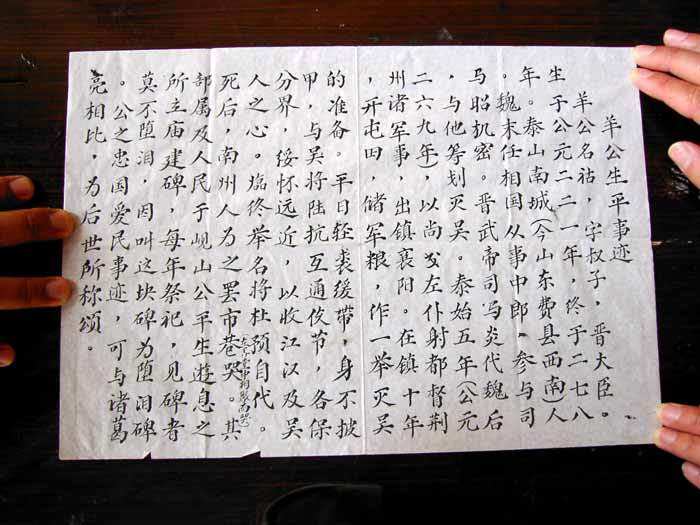 羊公生平事迹
羊公名祜,字权子,晋大臣。
生于公元二二一年,终于二七八
年。泰山南城(今山东费县西南)人
。魏末任相国从事中郎,参与司
马昭机密。晋武帝司马炎代魏后
,与他筹划灭吴。泰始五年(公元
二六九年),以尚书左仆射都督荆
州诸军事,出镇襄阳。在镇十年
,开屯田,储军粮,作一举灭吴
的准备。平日轻裘缓带,身不披
甲,与吴将陆抗互通使节,各保
分界,绥怀远近,以收江以及吴
人之心。临终举名将杜预自代。
死后,南州人为之罢市巷哭。其
部属及人民于岘山公平生遊息之
所立庙建碑,每年祭祀,见碑者
莫不堕泪,因叫这块碑为堕泪碑
。公之忠国爱民事迹,可与诸葛
亮相比,为后世所称颂。